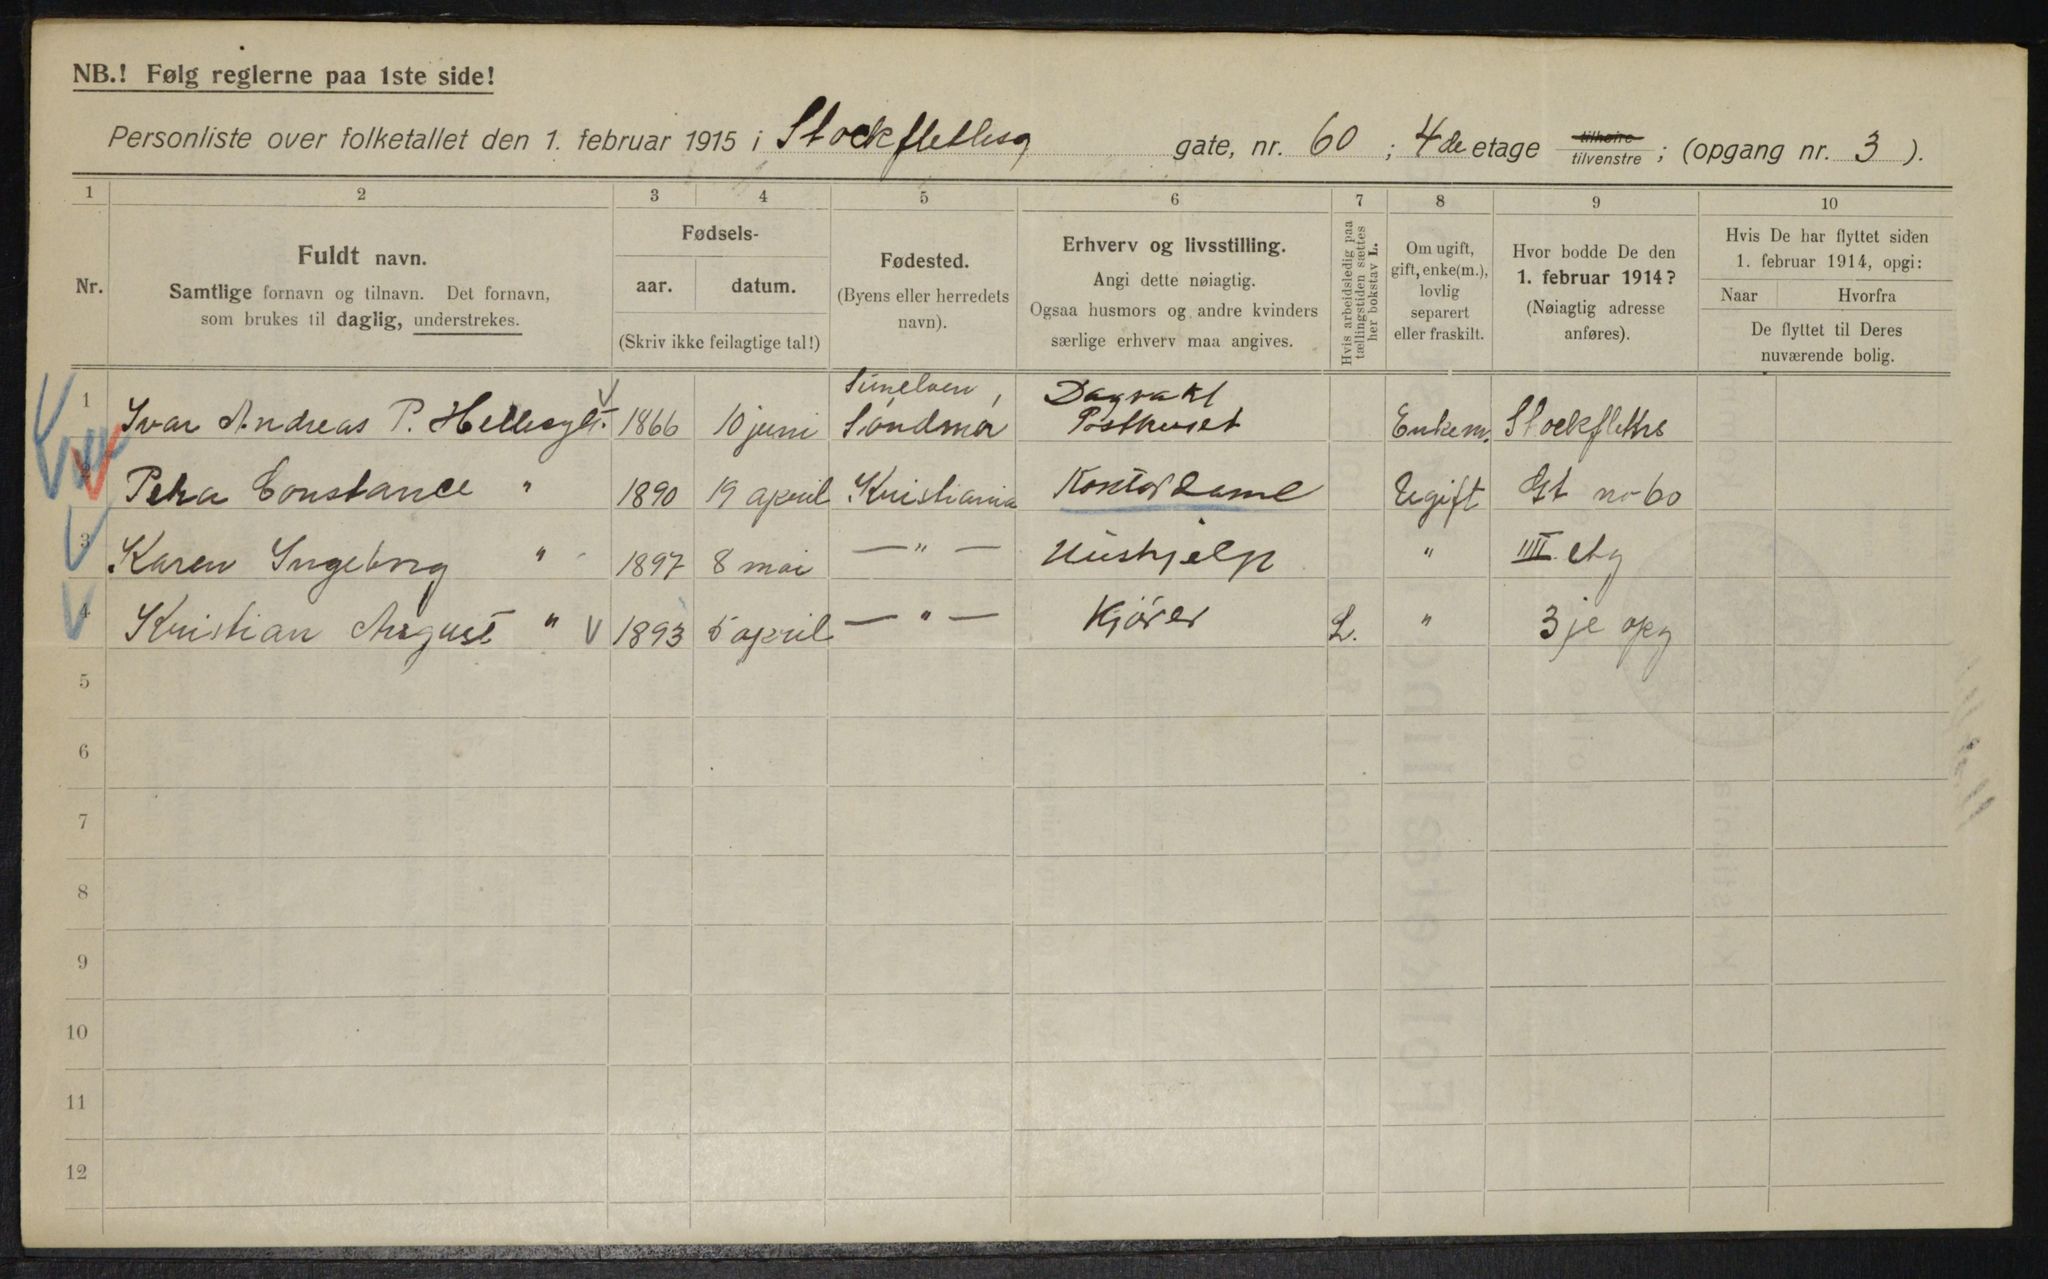 NB.! Følg reglerne paa 1ste side!
Personliste over folketallet den 1. februar 1915 i Stockflethsg gate, nr. 60 ; 4de etage tilhøire tilvenstre ; (opgang nr. 3 ).
1 2 3 4 5 6 7 8 9 10
Nr.
Fuldt navn.
Samtlige fornavn og tilnavn. Det fornavn,
som brukes til daglig, understrekes.
Fødsels-
aar. datum.
(Skriv ikke feilagtige tal!)
Fødested.
(Byens eller herredets
navn).
Erhverv og livsstilling.
Angi dette nøiagtig.
Ogsaa husmors og andre kvinders
særlige erhverv maa angives.
Hvis arbeidsledig paa
tællingstiden sættes
her bokstav L.
Om ugift,
gift, enke(m.),
lovlig
separert
eller fraskilt.
Hvor bodde De den
1. februar 1914?
(Nøiagtig adresse
anføres).
Hvis De har flyttet siden
1. februar 1914, opgi:
Naar Hvorfra
De flyttet til Deres
nuværende bolig.
1 Ivar Andreas P. Hellesylt 1866 10 juni Sunelven, Söndmör Dagvakt Posthuset Enkem. Stockfleths
2 Petra Constance " 1890 19 april Kristiania Kontordame Ugift Gt no 60
3 Karen Ingeborg " 1897 8 mai — " — Hushjelp " IIII etg
4 Kristian August " 1893 5 april — " — Kjører L. " 3je opg
5
6
7
8
9
10
11
12